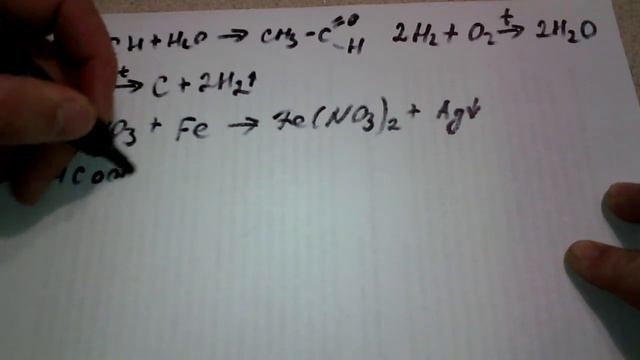 CH + H₂O → CH₃-C=O-H 2H₂ + O₂ t→ 2H₂O
t→ C + 2H₂↑
O₃ + Fe → Fe(NO₃)₂ + Ag↓